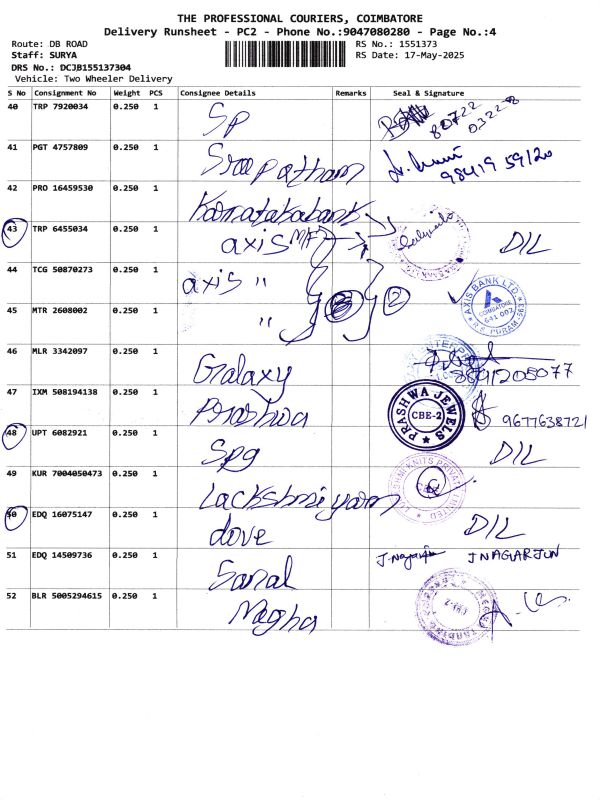 THE PROFESSIONAL COURIERS, COIMBATORE
Delivery Runsheet - PC2 - Phone No.:9047080280 - Page No.:4
Route: DB ROAD RS No.: 1551373
Staff: SURYA RS Date: 17-May-2025
DRS No.: DCJB155137304
Vehicle: Two Wheeler Delivery
S No Consignment No Weight PCS Consignee Details Remarks Seal & Signature
40 TRP 7920034 0.250 1 Sp 80722 03228
41 PGT 4757809 0.250 1 98419 59120
42 PRO 16459530 0.250 1 Karnatakabank
43 TRP 6455034 0.250 1 axis DIL
44 TCG 50870273 0.250 1 axis " 2 AXIS BANK LTD. COIMBATORE 641 002 R.S. PURAM
45 MTR 2608002 0.250 1 "
46 MLR 3342097 0.250 1 Galaxy
47 IXM 508194138 0.250 1 Prashwa PRASHWA JEWELS CBE-2 9677638721
48 UPT 6082921 0.250 1 Spg DIL
49 KUR 7004050473 0.250 1
50 EDQ 16075147 0.250 1 dove DIL
51 EDQ 14509736 0.250 1 J. Nagarjun J NAGARJUN
52 BLR 5005294615 0.250 1 Megha